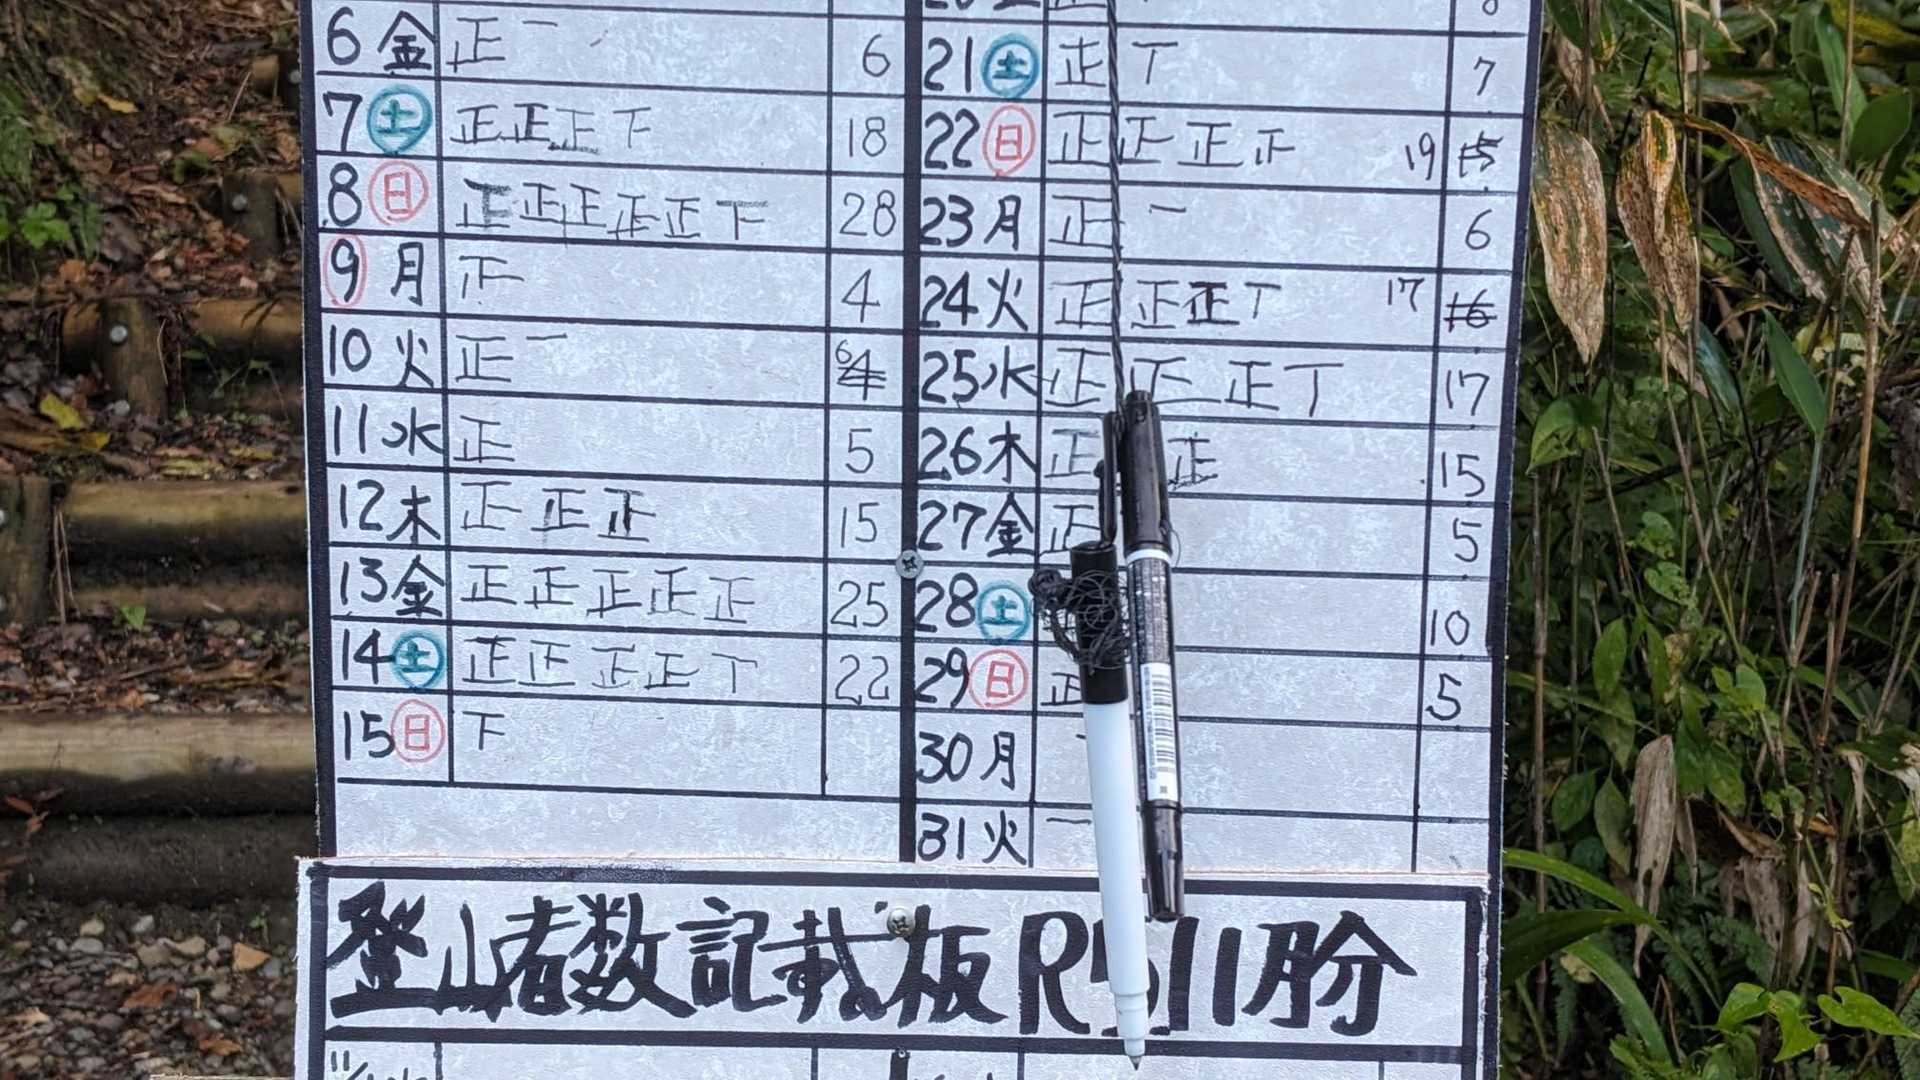 6 金 正一 6
7 土 正正正下 18
8 日 正正正正正下 28
9 月 正 4
10 火 正一 6
11 水 正 5
12 木 正正正 15
13 金 正正正正正 25
14 土 正正正正丅 22
15 日 下
21 土 正丅 7
22 日 正正正正 19 15
23 月 正一 6
24 火 正正正丅 17 16
25 水 正正正丅 17
26 木 正 正 15
27 金 正 5
28 土 10
29 日 正 5
30 月
31 火 一
登山者数記載板R5 11月分